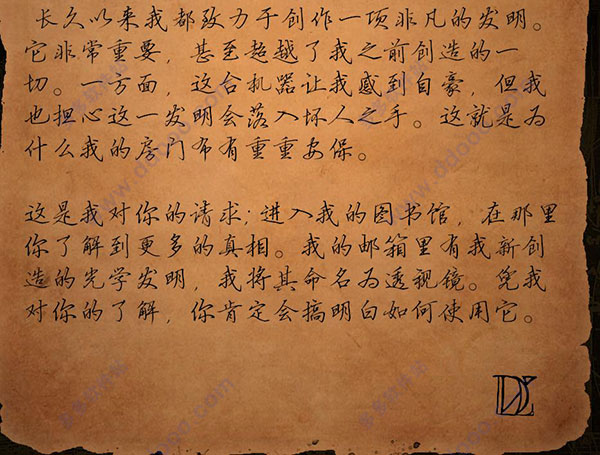 长久以来我都致力于创作一项非凡的发明。
它非常重要，甚至超越了我之前创造的一
切。一方面，这台机器让我感到自豪，但我
也担心这一发明会落入坏人之手。这就是为
什么我的房门布有重重安保。
这是我对你的请求；进入我的图书馆，在那里
你了解到更多的真相。我的邮箱里有我新创
造的光学发明，我将其命名为透视镜。凭我
对你的了解，你肯定会搞明白如何使用它。